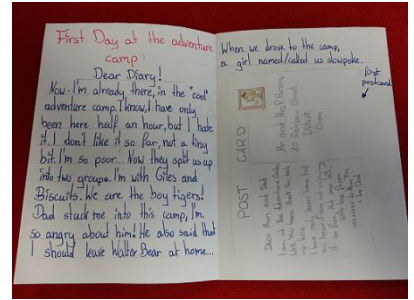 First Day at the adventure
camp:
Dear Diary!
Now I'm already there, in the "cool"
adventure camp. I know, I have only
been here half an hour, but I hate
it. I don't like it so far, not a tiny
bit. I'm so poor... Now they split us up
into two groups. I'm with Giles and
Biscuits. We are the boy tigers!
Dad stuck me into this camp, I'm
so angry about him! He also said that
I should leave Walter Bear at home...
When we drove to the camp,
a girl named/called us slowpoke.
first
postcard
POST CARD
Dear Mum and Dad